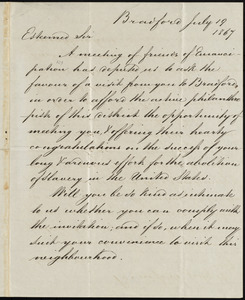 Bradford July 19
1867
Esteemed Sir
A meeting of friends of Emanci-
pation has deputed us to ask the
favour of a visit from you to Bradford,
in order to afford the active philanthro-
pists of this district the opportunity of
meeting you, & offering their hearty
congratulations on the success of your
long & arduous efforts for the abolition
of Slavery in the United States.
Will you be so kind as intimate
to us whether you can comply with
the invitation, and if so, when it may
suit your convenience to visit this
neighbourhood.